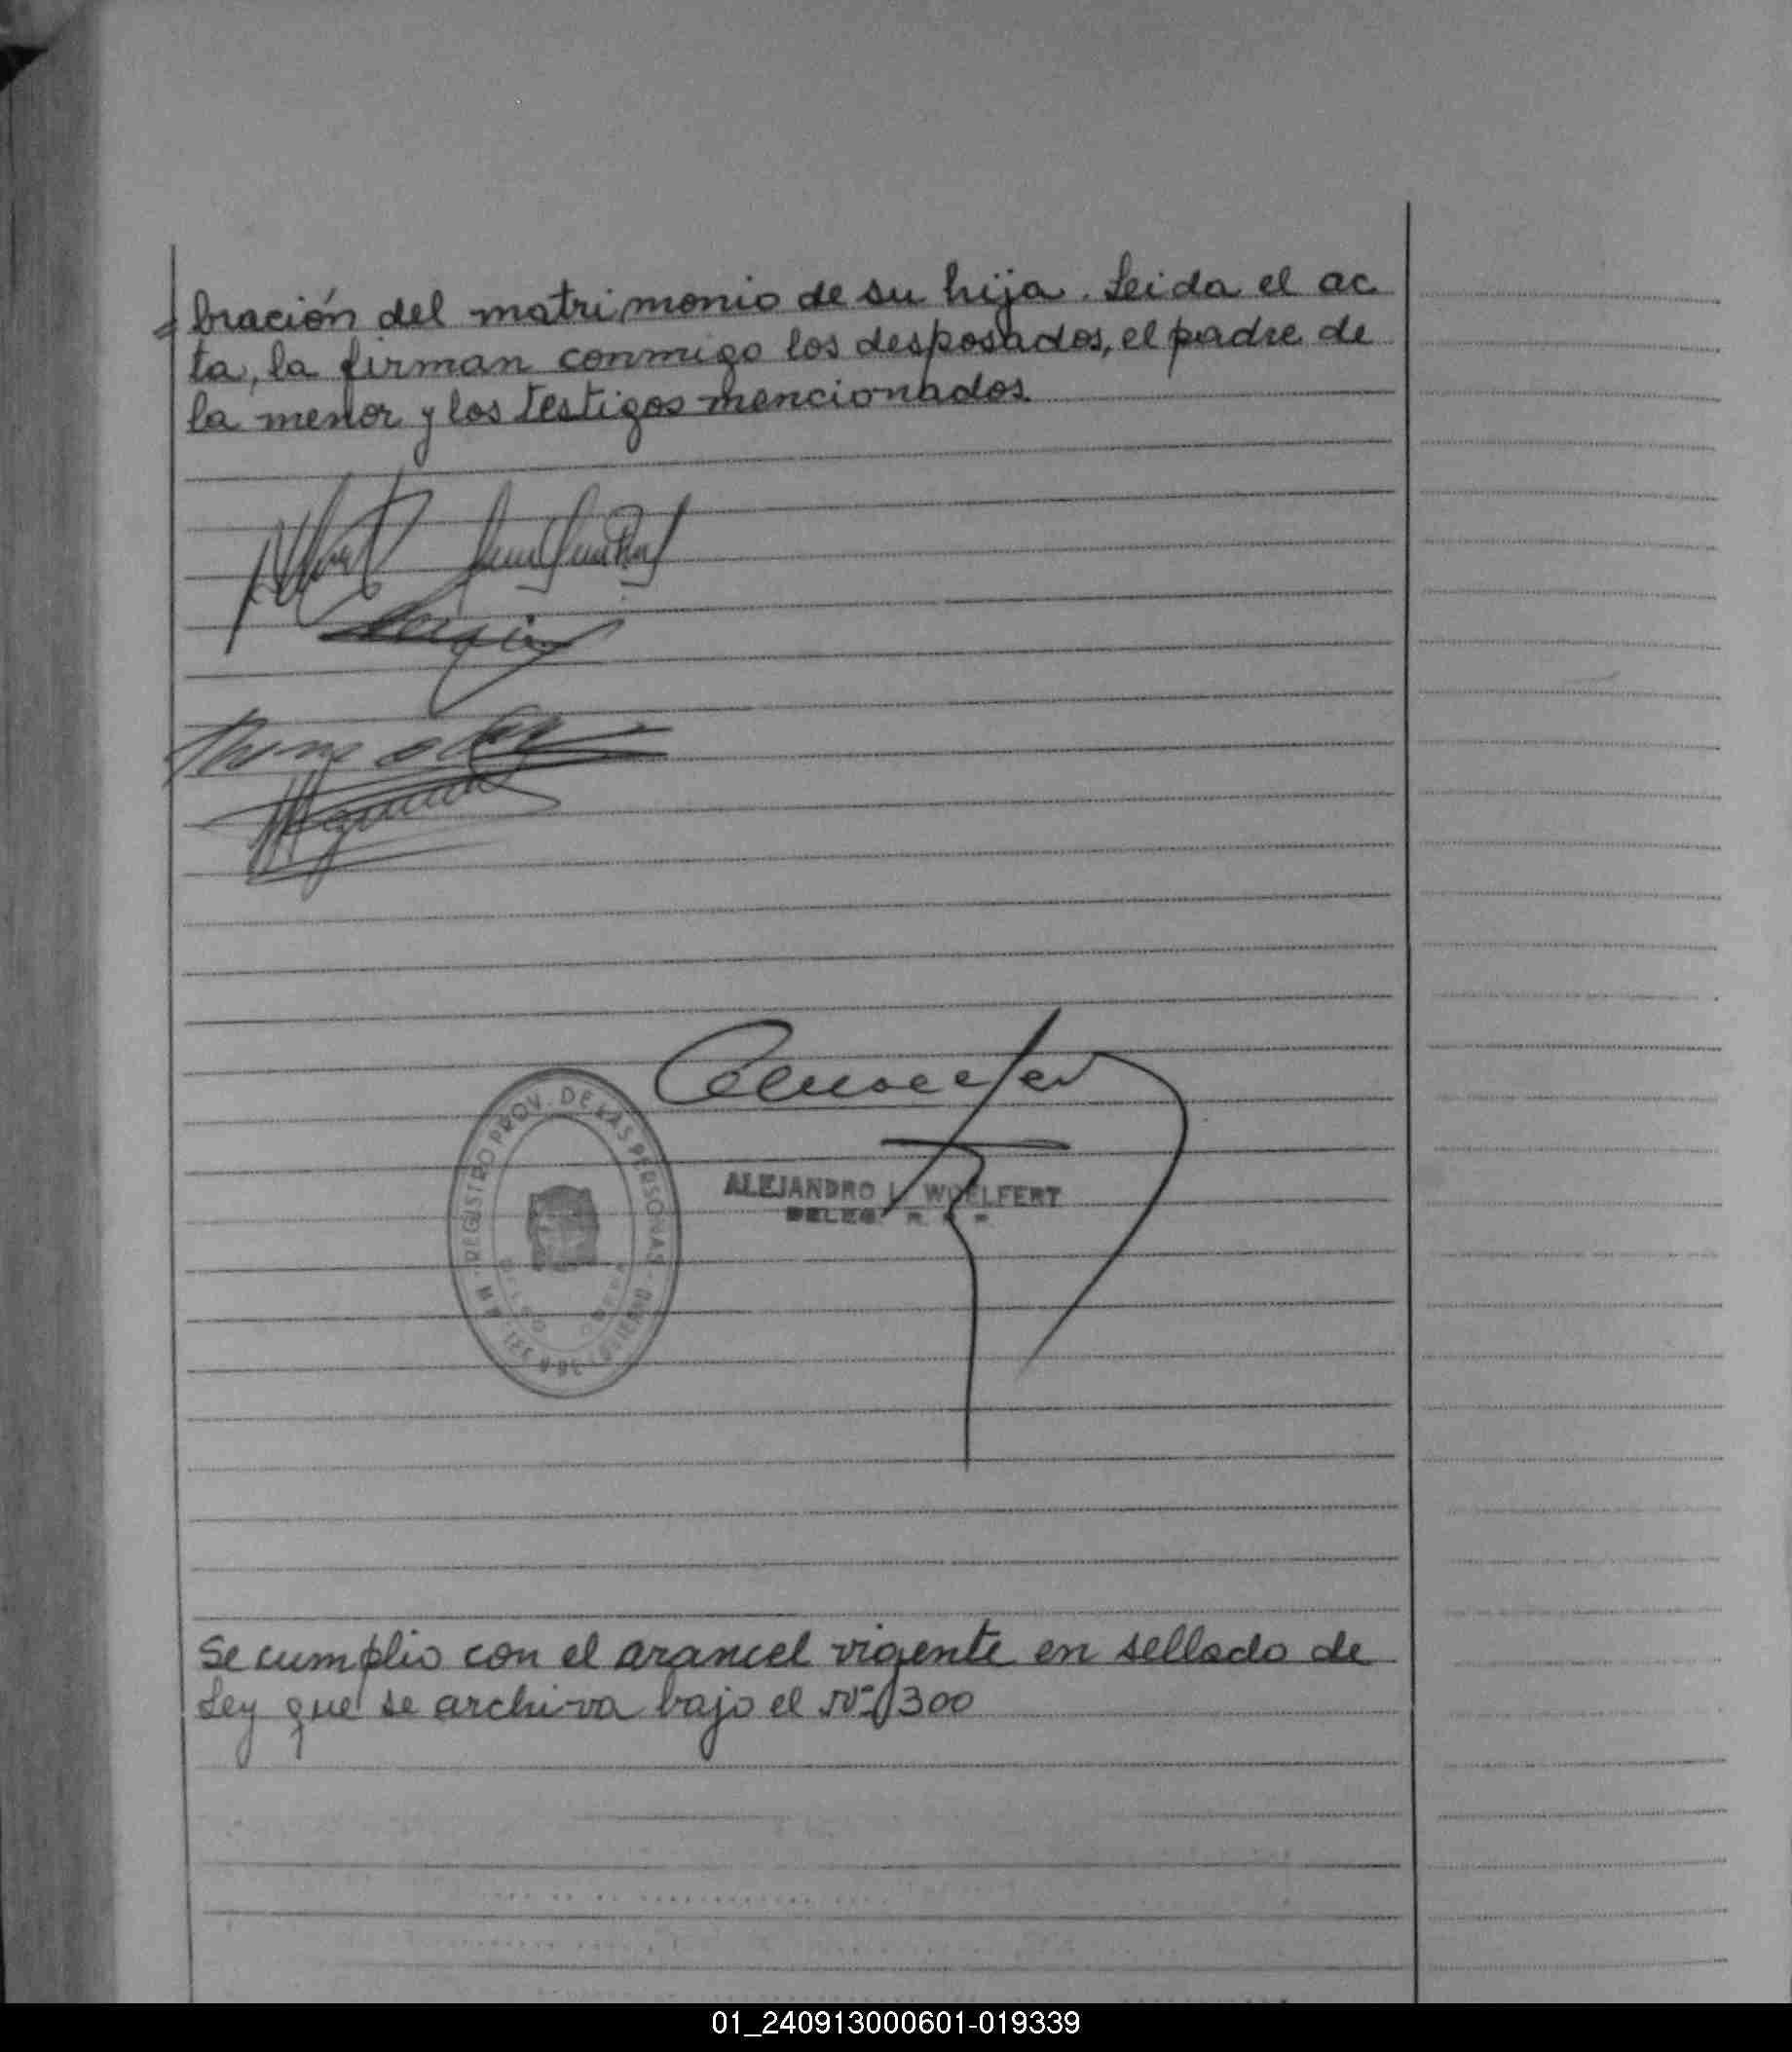 = bración del matrimonio de su hija. Leida el ac
ta, la firman conmigo los desposados, el padre de
la menor y los testigos mencionados.
REGISTRO PROV. DE LAS PERSONAS
ALEJANDRO L. WOELFERT
DELEG. R.
Se cumplio con el arancel vigente en sellado de
Ley que se archiva bajo el Nº 300
01_240913000601-019339